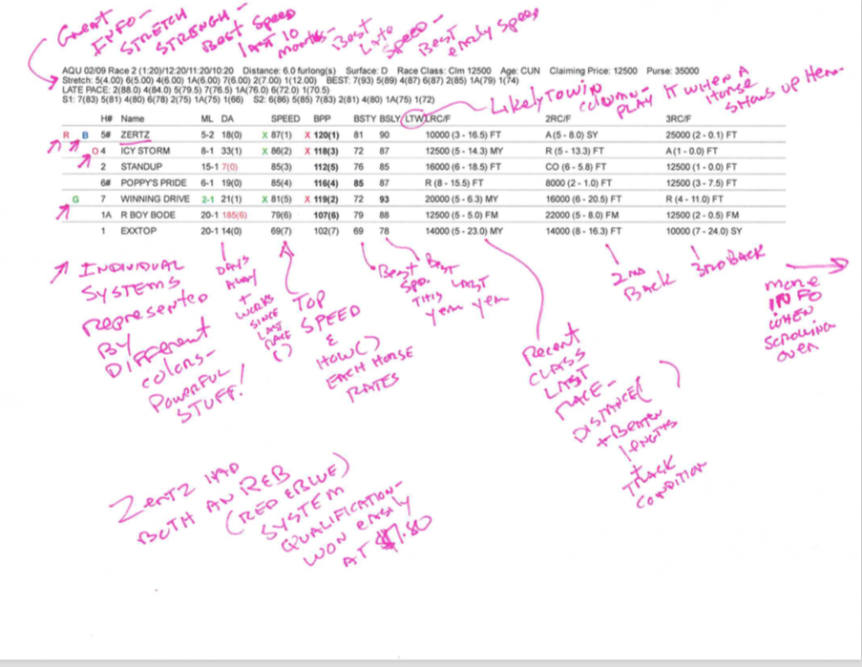 Great
INFO-
STRETCH
STRENGTH-
Best Speed
last 10
months-
Best
Late
Speed-
Best
early speed
AQU 02/09 Race 2 (1:20)/12:20/11:20/10:20 Distance: 6.0 furlong(s) Surface: D Race Class: Clm 12500 Age: CUN Claiming Price: 12500 Purse: 35000
Stretch: 5(4.00) 6(5.00) 4(6.00) 1A(6.00) 7(6.00) 2(7.00) 1(12.00) BEST: 7(93) 5(89) 4(87) 6(87) 2(85) 1A(79) 1(74)
LATE PACE: 2(88.0) 4(84.0) 5(79.5) 7(76.5) 1A(76.0) 6(72.0) 1(70.5)
S1: 7(83) 5(81) 4(80) 6(78) 2(75) 1A(75) 1(66) S2: 6(86) 5(85) 7(83) 2(81) 4(80) 1A(75) 1(72)
Likely To win
column-
PLAY IT WHEN A
Horse
SHOWS UP Here-
H# Name ML DA SPEED BPP BSTY BSLY LTW LRC/F 2RC/F 3RC/F
R B 5# ZERTZ 5-2 18(0) X 87(1) X 120(1) 81 90 10000 (3 - 16.5) FT A (5 - 8.0) SY 25000 (2 - 0.1) FT
O 4 ICY STORM 8-1 33(1) X 86(2) X 118(3) 72 87 12500 (5 - 14.3) MY R (5 - 13.3) FT A (1 - 0.0) FT
2 STANDUP 15-1 7(0) 85(3) 112(5) 76 85 16000 (6 - 18.5) FT CO (6 - 5.8) FT 12500 (1 - 0.0) FT
6# POPPY'S PRIDE 6-1 19(0) 85(4) 116(4) 85 87 R (8 - 15.5) FT 8000 (2 - 1.0) FT 12500 (3 - 7.5) FT
G 7 WINNING DRIVE 2-1 21(1) X 81(5) X 119(2) 72 93 20000 (5 - 6.3) MY 16000 (6 - 20.5) FT R (4 - 11.0) FT
1A R BOY BODE 20-1 185(6) 79(6) 107(6) 79 88 12500 (5 - 5.0) FM 22000 (5 - 8.0) FM 12500 (2 - 0.5) FM
1 EXXTOP 20-1 14(0) 69(7) 102(7) 69 78 14000 (5 - 23.0) MY 14000 (8 - 16.3) FT 10000 (7 - 24.0) SY
INDIVIDUAL
SYSTEMS
Represented
BY
Different
colors-
POWERFUL
STUFF!
DAYS
AWAY
+
WORKS
SINCE
LAST
RACE
( )
TOP
SPEED
&
HOW ( )
EACH HORSE
RATES
Best
Spd.
THIS
Year
Best
LAST
year
Recent
CLASS
LAST
RACE-
DISTANCE( )
+ Beaten
lengths
+
TRACK
CONDITION
2nd
BACK
3rd BACK
more
INFO
WHEN
SCROLLING
OVER
Zertz HAD
BOTH AN REB
(RED & BLUE)
SYSTEM
QUALIFICATION-
WON EASILY
AT $7.80